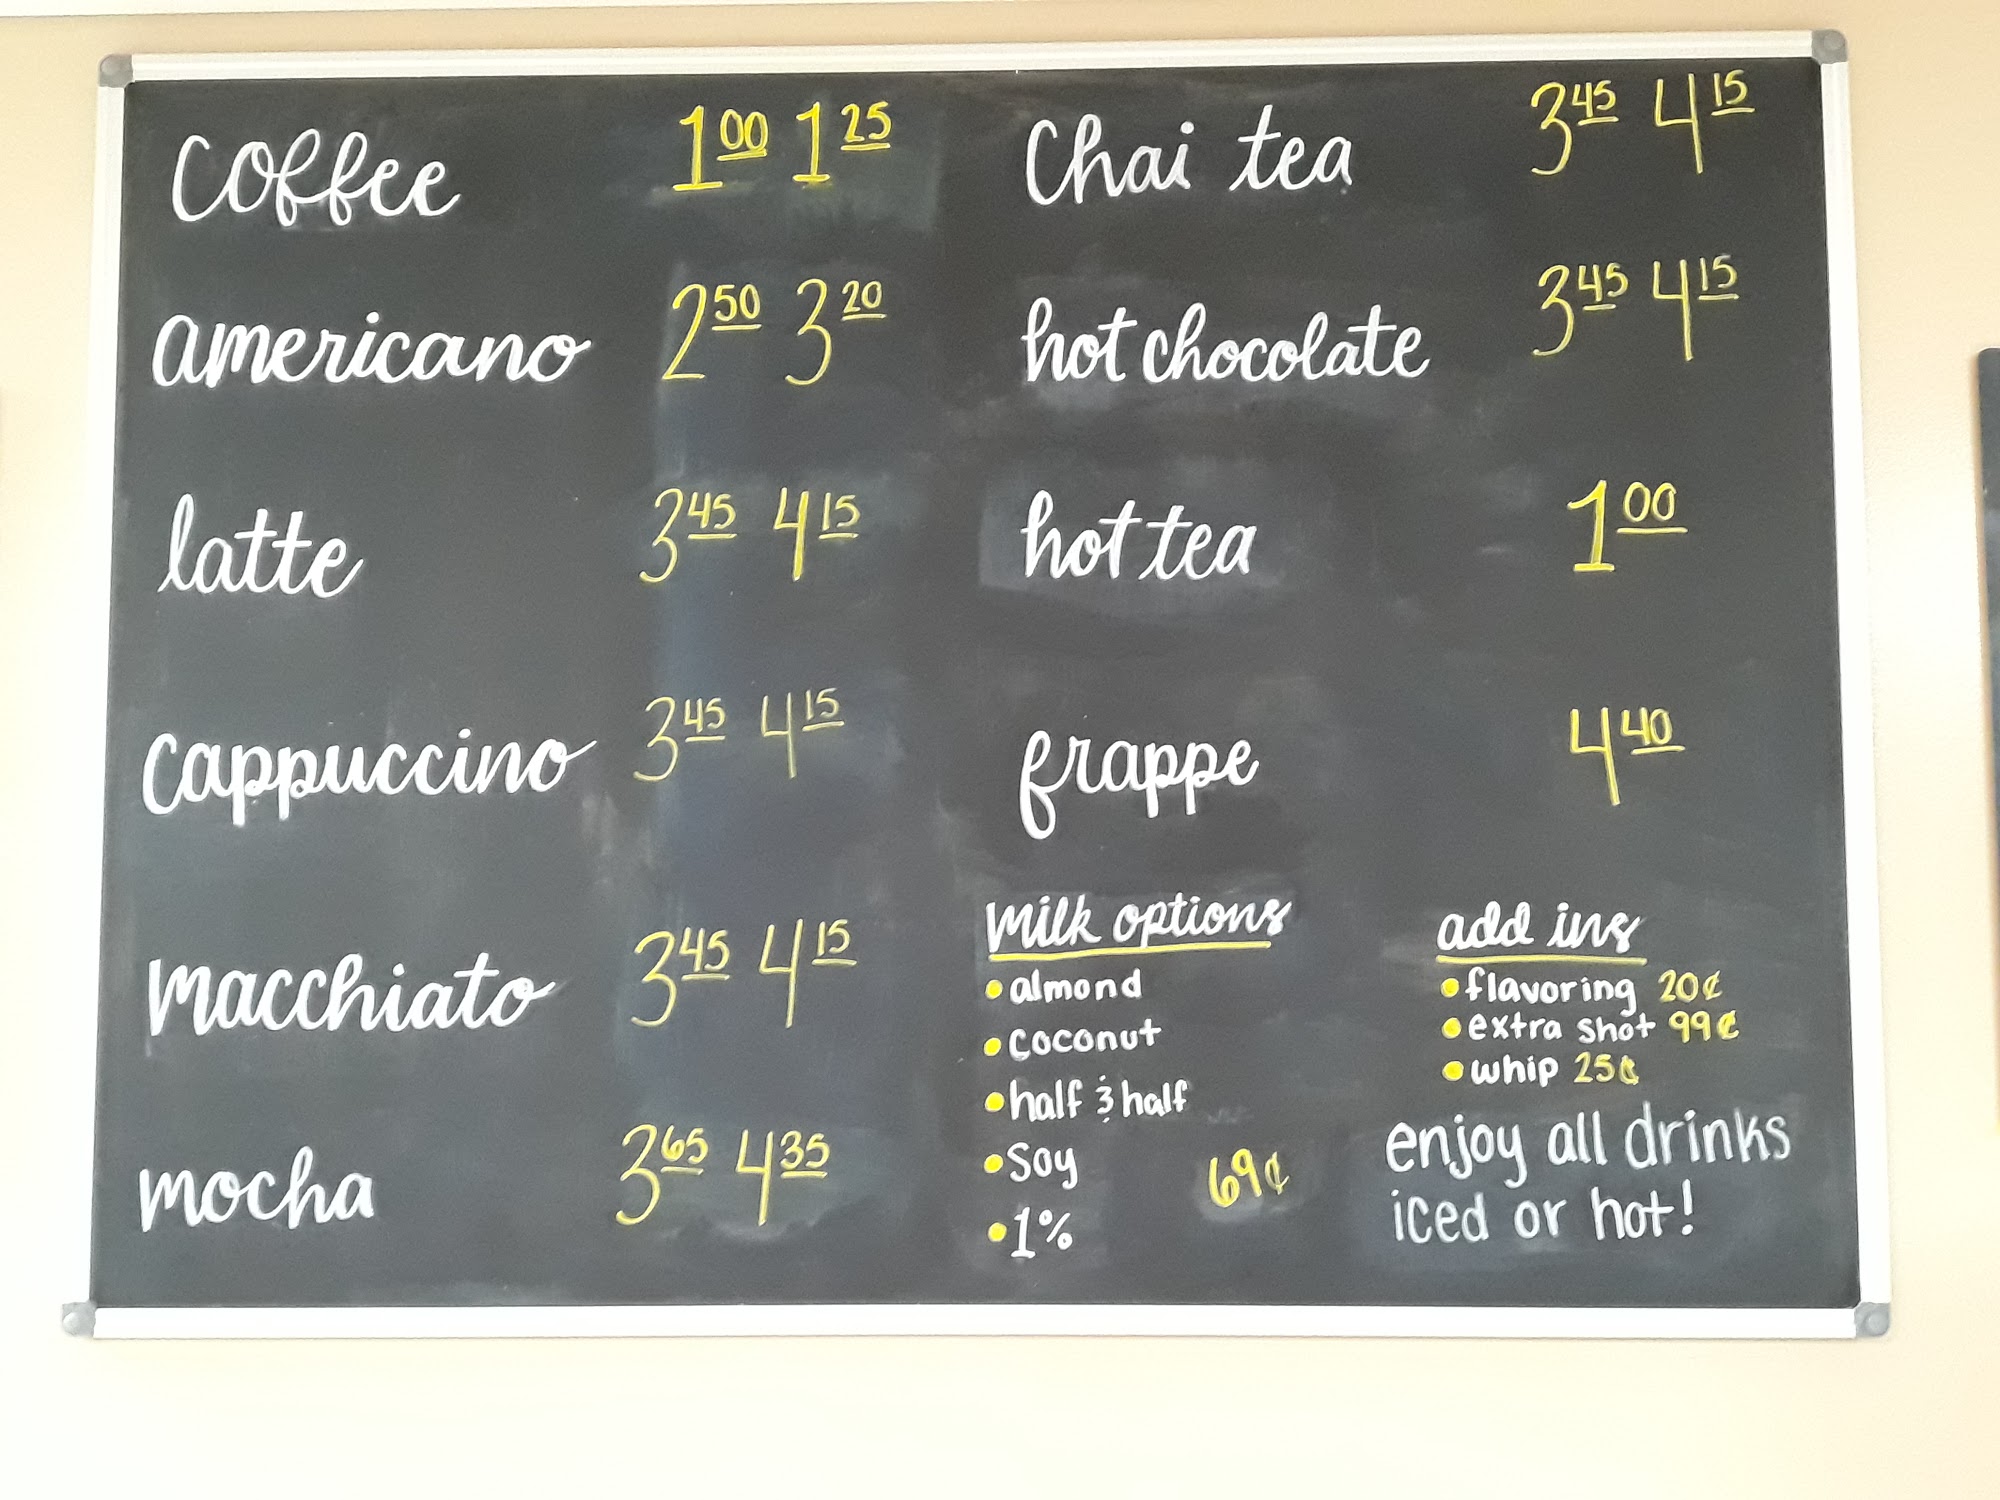 coffee 1.00 1.25
americano 2.50 3.20
latte 3.45 4.15
cappuccino 3.45 4.15
macchiato 3.45 4.15
mocha 3.65 4.35
Chai tea 3.45 4.15
hot chocolate 3.45 4.15
hot tea 1.00
frappe 4.40
milk options
• almond
• coconut
• half & half
• Soy 69¢
• 1%
add ins
• flavoring 20¢
• extra shot 99¢
• whip 25¢
enjoy all drinks
iced or hot!